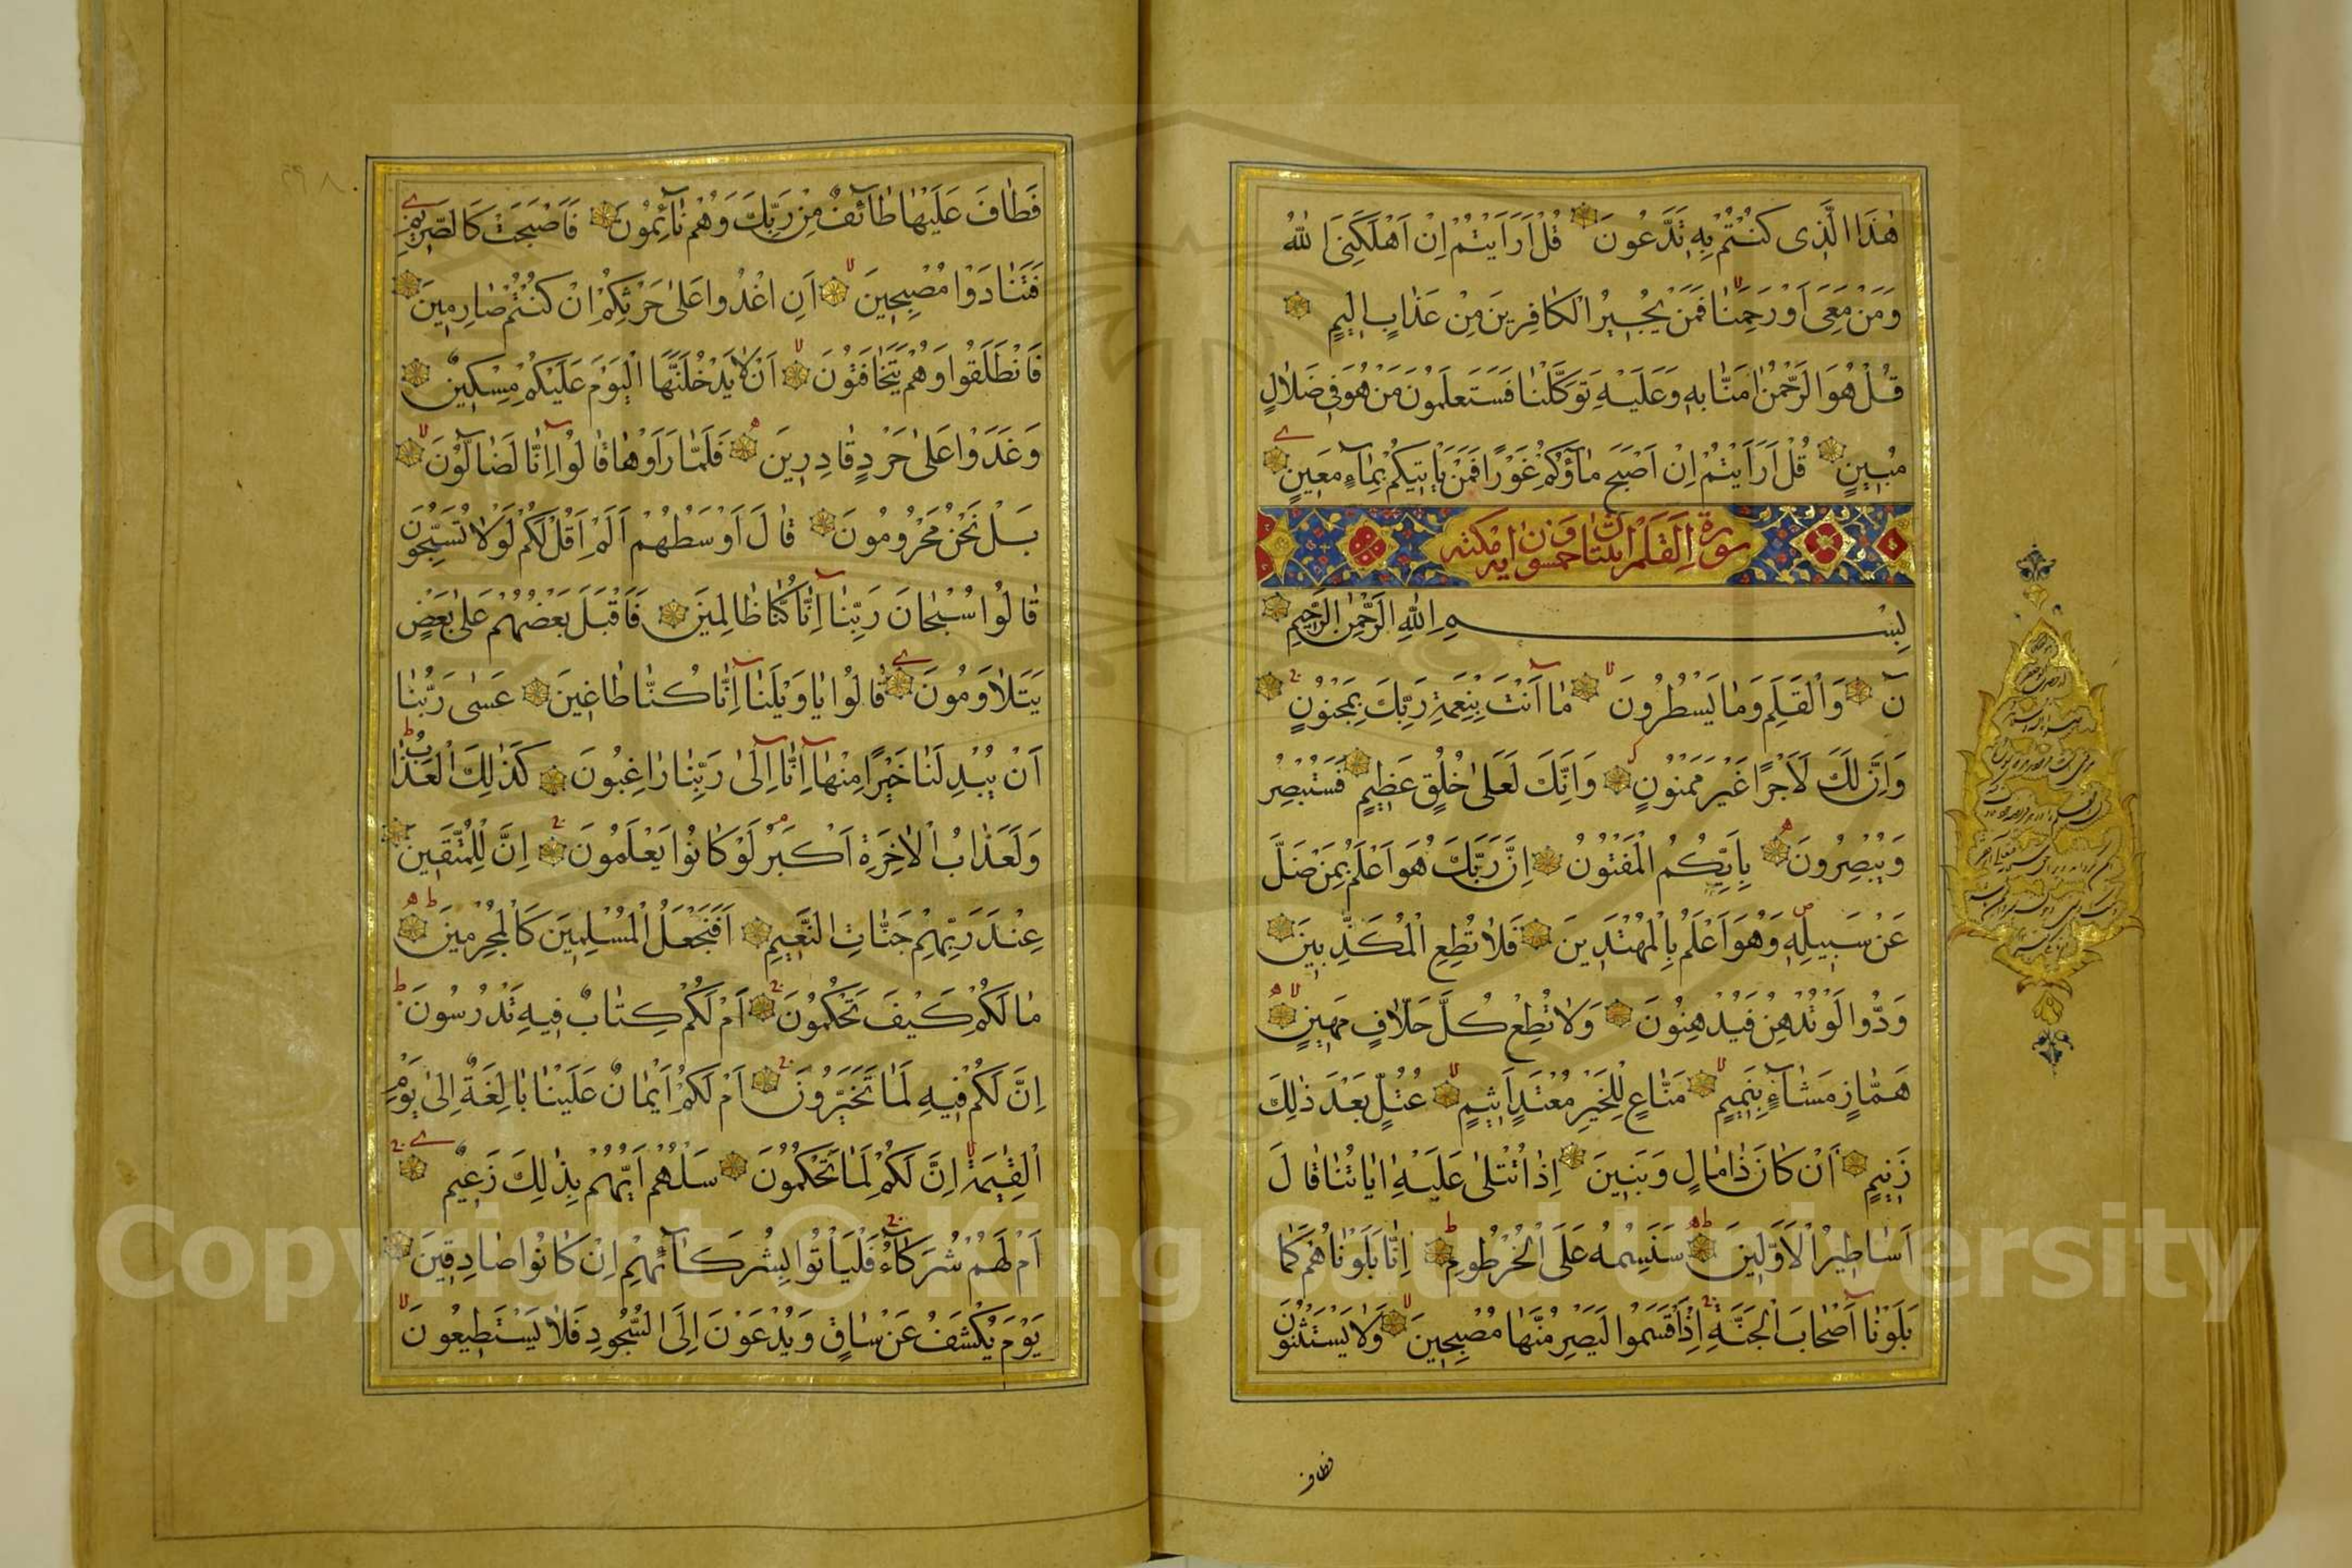 هٰذَا الَّذِى كُنْتُمْ بِهِ تَدَّعُونَ قُلْ اَرَاَيْتُمْ اِنْ اَهْلَكَنِىَ اللهُ
وَمَنْ مَعِىَ اَوْ رَحِمَنَا فَمَنْ يُجِيرُ الْكَافِرِينَ مِنْ عَذَابٍ اَلِيمٍ
قُلْ هُوَ الرَّحْمٰنُ اٰمَنَّا بِهِ وَعَلَيْهِ تَوَكَّلْنَا فَسَتَعْلَمُونَ مَنْ هُوَ فِى ضَلَالٍ
مُبِينٍ قُلْ اَرَاَيْتُمْ اِنْ اَصْبَحَ مَآؤُكُمْ غَوْرًا فَمَنْ يَاْتِيكُمْ بِمَآءٍ مَعِينٍ
سورة القلم اثنتان وخمسون اية مكية
بِسْمِ اللهِ الرَّحْمٰنِ الرَّحِيمِ
نٓ وَالْقَلَمِ وَمَا يَسْطُرُونَ مَآ اَنْتَ بِنِعْمَةِ رَبِّكَ بِمَجْنُونٍ
وَاِنَّ لَكَ لَاَجْرًا غَيْرَ مَمْنُونٍ وَاِنَّكَ لَعَلٰى خُلُقٍ عَظِيمٍ فَسَتُبْصِرُ
وَيُبْصِرُونَ بِاَيِّكُمُ الْمَفْتُونُ اِنَّ رَبَّكَ هُوَ اَعْلَمُ بِمَنْ ضَلَّ
عَنْ سَبِيلِهِ وَهُوَ اَعْلَمُ بِالْمُهْتَدِينَ فَلَا تُطِعِ الْمُكَذِّبِينَ
وَدُّوا لَوْ تُدْهِنُ فَيُدْهِنُونَ وَلَا تُطِعْ كُلَّ حَلَّافٍ مَهِينٍ
هَمَّازٍ مَشَّآءٍ بِنَمِيمٍ مَنَّاعٍ لِلْخَيْرِ مُعْتَدٍ اَثِيمٍ عُتُلٍّ بَعْدَ ذٰلِكَ
زَنِيمٍ اَنْ كَانَ ذَا مَالٍ وَبَنِينَ اِذَا تُتْلٰى عَلَيْهِ اٰيَاتُنَا قَالَ
اَسَاطِيرُ الْاَوَّلِينَ سَنَسِمُهُ عَلَى الْخُرْطُومِ اِنَّا بَلَوْنَاهُمْ كَمَا
بَلَوْنَآ اَصْحَابَ الْجَنَّةِ اِذْ اَقْسَمُوا لَيَصْرِمُنَّهَا مُصْبِحِينَ وَلَا يَسْتَثْنُونَ
فطاف
فَطَافَ عَلَيْهَا طَآئِفٌ مِنْ رَبِّكَ وَهُمْ نَآئِمُونَ فَاَصْبَحَتْ كَالصَّرِيمِ
فَتَنَادَوْا مُصْبِحِينَ اَنِ اغْدُوا عَلٰى حَرْثِكُمْ اِنْ كُنْتُمْ صَارِمِينَ
فَانْطَلَقُوا وَهُمْ يَتَخَافَتُونَ اَنْ لَا يَدْخُلَنَّهَا الْيَوْمَ عَلَيْكُمْ مِسْكِينٌ
وَغَدَوْا عَلٰى حَرْدٍ قَادِرِينَ فَلَمَّا رَاَوْهَا قَالُوا اِنَّا لَضَآلُّونَ
بَلْ نَحْنُ مَحْرُومُونَ قَالَ اَوْسَطُهُمْ اَلَمْ اَقُلْ لَكُمْ لَوْلَا تُسَبِّحُونَ
قَالُوا سُبْحَانَ رَبِّنَآ اِنَّا كُنَّا ظَالِمِينَ فَاَقْبَلَ بَعْضُهُمْ عَلٰى بَعْضٍ
يَتَلَاوَمُونَ قَالُوا يَا وَيْلَنَآ اِنَّا كُنَّا طَاغِينَ عَسٰى رَبُّنَا
اَنْ يُبْدِلَنَا خَيْرًا مِنْهَآ اِنَّآ اِلٰى رَبِّنَا رَاغِبُونَ كَذٰلِكَ الْعَذَابُ
وَلَعَذَابُ الْاٰخِرَةِ اَكْبَرُ لَوْ كَانُوا يَعْلَمُونَ اِنَّ لِلْمُتَّقِينَ
عِنْدَ رَبِّهِمْ جَنَّاتِ النَّعِيمِ اَفَنَجْعَلُ الْمُسْلِمِينَ كَالْمُجْرِمِينَ
مَا لَكُمْ كَيْفَ تَحْكُمُونَ اَمْ لَكُمْ كِتَابٌ فِيهِ تَدْرُسُونَ
اِنَّ لَكُمْ فِيهِ لَمَا تَخَيَّرُونَ اَمْ لَكُمْ اَيْمَانٌ عَلَيْنَا بَالِغَةٌ اِلٰى يَوْمِ
الْقِيٰمَةِ اِنَّ لَكُمْ لَمَا تَحْكُمُونَ سَلْهُمْ اَيُّهُمْ بِذٰلِكَ زَعِيمٌ
اَمْ لَهُمْ شُرَكَآءُ فَلْيَاْتُوا بِشُرَكَآئِهِمْ اِنْ كَانُوا صَادِقِينَ
يَوْمَ يُكْشَفُ عَنْ سَاقٍ وَيُدْعَوْنَ اِلَى السُّجُودِ فَلَا يَسْتَطِيعُونَ
Copyright © King Saud University